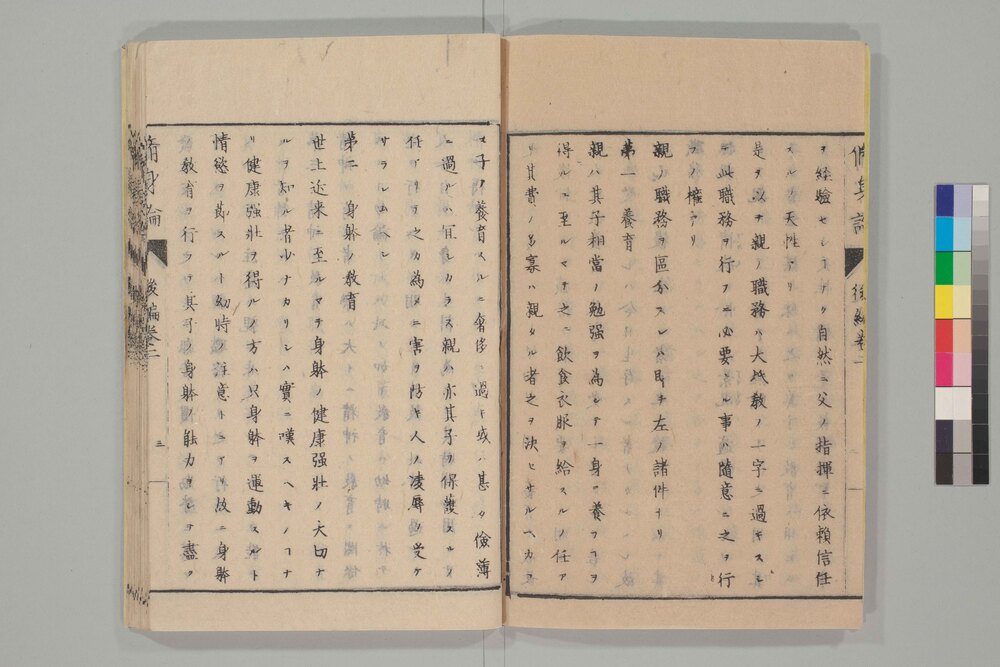 ヲ経驗セシヿナク自然ニ父ノ指揮ニ依賴信任
スルハ天性ナリ
是ヲ以テ親ノ職務ハ大抵教ノ一字ニ過キスシ
テ此職務ヲ行フニ必要ナル事ハ隨意ニ之ヲ行
フノ權アリ
親ノ職務ヲ區分スレハ即チ左ノ諸件ナリ
第一養育
親ハ其子相當ノ勉强ヲ為シテ一身ヲ養フヿヲ
得ルニ至ルマテ之ニ飲食衣服ヲ給スルノ任ア
リ其費ノ多寡ハ親タル者之ヲ決セサルヘカラ
ス子ヲ養育スルニ奢侈ニ過キ或ハ甚タ儉薄
ニ過ルハ宜シカラス親ハ亦其子ヲ保護スルノ
任アリテ之カ為メニ害ヲ防キ人ノ凌辱ヲ受ケ
サラシムヘシ
第二身躰ノ教育
世上近来ニ至ルマテ身躰ノ健康强壮ノ大切ナ
ルヲ知ル者少ナカリシハ實ニ嘆スヘキノヿナ
リ健康强壮ヲ得ル方ハ只身躰ヲ運動スルト
情慾ヲ節スルト幼時ノ注意トニアリ故ニ身躰
ノ教育ヲ行フ
修身論
後編巻二
三